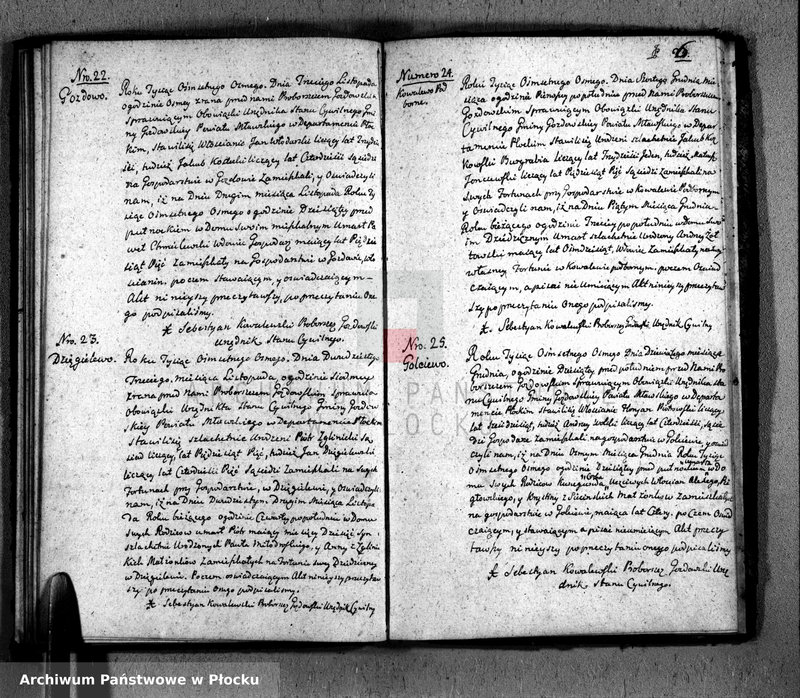 Nro. 22.
Gozdowo.
Roku Tysiąc Ośmsetnego Osmego. Dnia Trzeciego Listopada
ogodzinie Osmey zrana przed nami Proboszczem Gozdowskim
Sprawuiącym Obowiązki Urzędnika Stanu Cywilnego Gmi
ny Gozdowskiey Powiatu Mławskiego w Departamencie Płoc
kim, Stawili się Włościanie Jan Włodarski liczący lat Trzydzie
ści, tudzież Jakub liczący lat Czterdzieści Sąsiedzi
na Gospodarstwie w Gozdowie Zamieszkali, y Oswiadczyli
nam, iż na Dniu Drugim miesiąca Listopada Roku Ty
siąc Ośmsetnego Osmego o godzinie Dziesiątey przed
południem w Domu Swoim mieszkalnym Umarł Pa
weł Chmielewski Wdowiec Gospodarz maiący lat Pięćdzie
siąt Pięć Zamieszkały na Gospodarstwie w Gozdowie, Wło
ścianin, poczem Stawaiącym, y oswiadczaiącym
Akt ninieyszy przeczytawszy, po przeczytaniu One
go podpisaliśmy.
X. Sebestyan Kowalewski Proboszcz Gozdowski
Urzędnik Stanu Cywilnego.
Nro. 23.
Dzięgielewo.
Roku Tysiąc Ośmsetnego Osmego. Dnia Dwudziestego
Trzeciego, miesiąca Listopada, ogodzinie Siodmey
zrana przed Nami Proboszczem Gozdowskim Sprawuią
Obowiązki Urzędnika Stanu Cywilnego Gminy Gozdow
skiey Powiatu Mławskiego w Departamencie Płockim
Stawili się szlachetnie Urodzeni Piotr Zglinicki Są
siad liczący, lat Pięćdziesiąt Pięć, tudzież Jan Dzięgielewski
liczący lat Czterdzieści Pięć Sąsiedzi Zamieszkali na Swych
Fortunach przy Gospodarstwie, w Dzięgielewie, y Oswiadczyli
nam, iż na Dniu Dwudziestym Drugim Miesiąca Listopa
da Roku bieżącego ogodzinie Czwartey po południu w Domu
Swych Rodzicow umarł Piotr maiący miesięcy Dziesięć Syn
szlachetnie Urodzonych Pawła y Anny z Zglinic
kich Małżonkow Zamieszkałych na Fortunie Swey Dziedziczney
w Dzięgielewie. Poczem oswiadczaiącym Akt ninieyszy przeczytaw
szy po przeczytaniu Onego podpisaliśmy.
X. Sebestyan Kowalewski Proboszcz Gozdowski Urzędnik Cywilny
Numero 24.
Kowalewo Pod
borne.
Roku Tysiąc Ośmsetnego Osmego. Dnia Szostego Grudnia Mie
siąca ogodzinie Pierwszey po południu przed Nami Proboszczem
Gozdowskim Sprawuiącym Obowiązki Urzędnika Stanu
Cywilnego Gminy Gozdowskiey Powiatu Mławskiego w Depar
tamencie Płockim Stawili się Urodzeni szlachetnie Jakub
liczący lat Trzydzieści Jeden, tudzież
liczący lat Pięćdziesiąt Pięć Sąsiedzi Zamieszkali na
Swych Fortunach przy Gospodarstwie w Kowalewie Podbornym
y Oswiadczyli nam, iż na Dniu Piątym Miesiąca Grudnia
Roku bieżącego ogodzinie Trzeciey po południu w Domu Swo
im Dziedzicznym Umarł szlachetnie Urodzony Andrzey
maiący lat Ośmdziesiąt, Wdowiec Zamieszkały na Swey
własney Fortunie w Kowalewie podbornym, poczem Oswiad
czaiącym, a pisać nie umieiącym Akt ninieyszy przeczytaw
szy po przeczytaniu Onego podpisaliśmy.
X. Sebestyan Kowalewski Proboszcz Gozdowski Urzędnik Cywilny
Nro. 25.
Goleiewo.
Roku Tysiąc Ośmsetnego Osmego Dnia Dziewiątego miesiąca
Grudnia, ogodzinie Dziesiątey, przed południem przed Nami Pro
boszczem Gozdowskim Sprawuiącym Obowiązki Urzędnika Sta
nu Cywilnego Gminy Gozdowskiey Powiatu Mławskiego w Departa
mencie Płockim Stawili się Włościanie Floryan liczący
lat tudzież Andrzey liczący lat Czterdzieści, Sąsie
dzi Gospodarze Zamieszkali na gospodarstwie w Goleiewie, y oswiad
czyli nam, iż na Dniu Osmym Miesiąca Grudnia Roku Tysiąc
Ośmsetnego Osmego ogodzinie Dziesiątey przed południem umarła w Do
mu Swych Rodzicow corka Uczciwych Włościan
y Krystyny z Małżonkow zamieszkałych
na gospodarstwie w Goleiewie, maiąca lat Cztery. poczem Oswiad
czaiącym, y stawaiącym a pisać nieumieiącym Akt przeczy
tawszy ninieyszy po przeczytaniu onego podpisaliśmy
X Sebestyan Kowalewski Proboszcz Gozdowski Urzę
dnik Stanu Cywilnego.
Archiwum Państwowe w Płocku